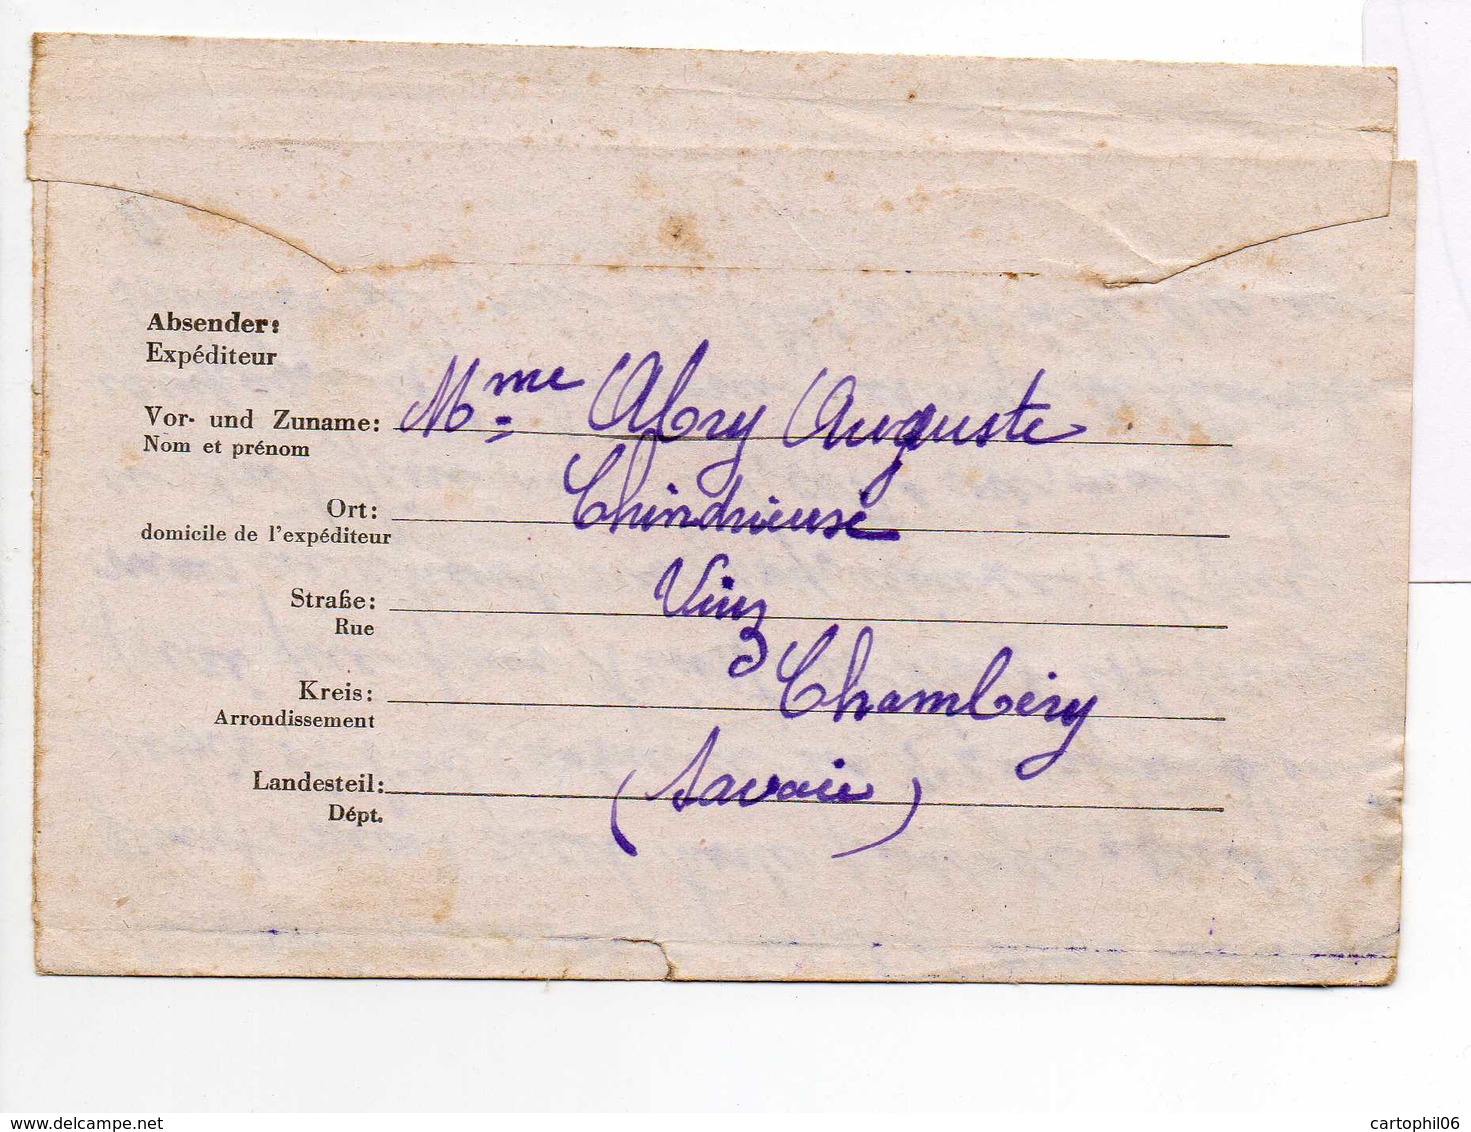 Absender:
Expéditeur
Vor- und Zuname: Mme Abry Auguste
Nom et prénom
Ort: Chindrieuse
domicile de l'expéditeur
Straße:
Rue
Kreis: Chambéry
Arrondissement
Landesteil: (Savoie)
Dépt.
delcampe.net
cartophil06